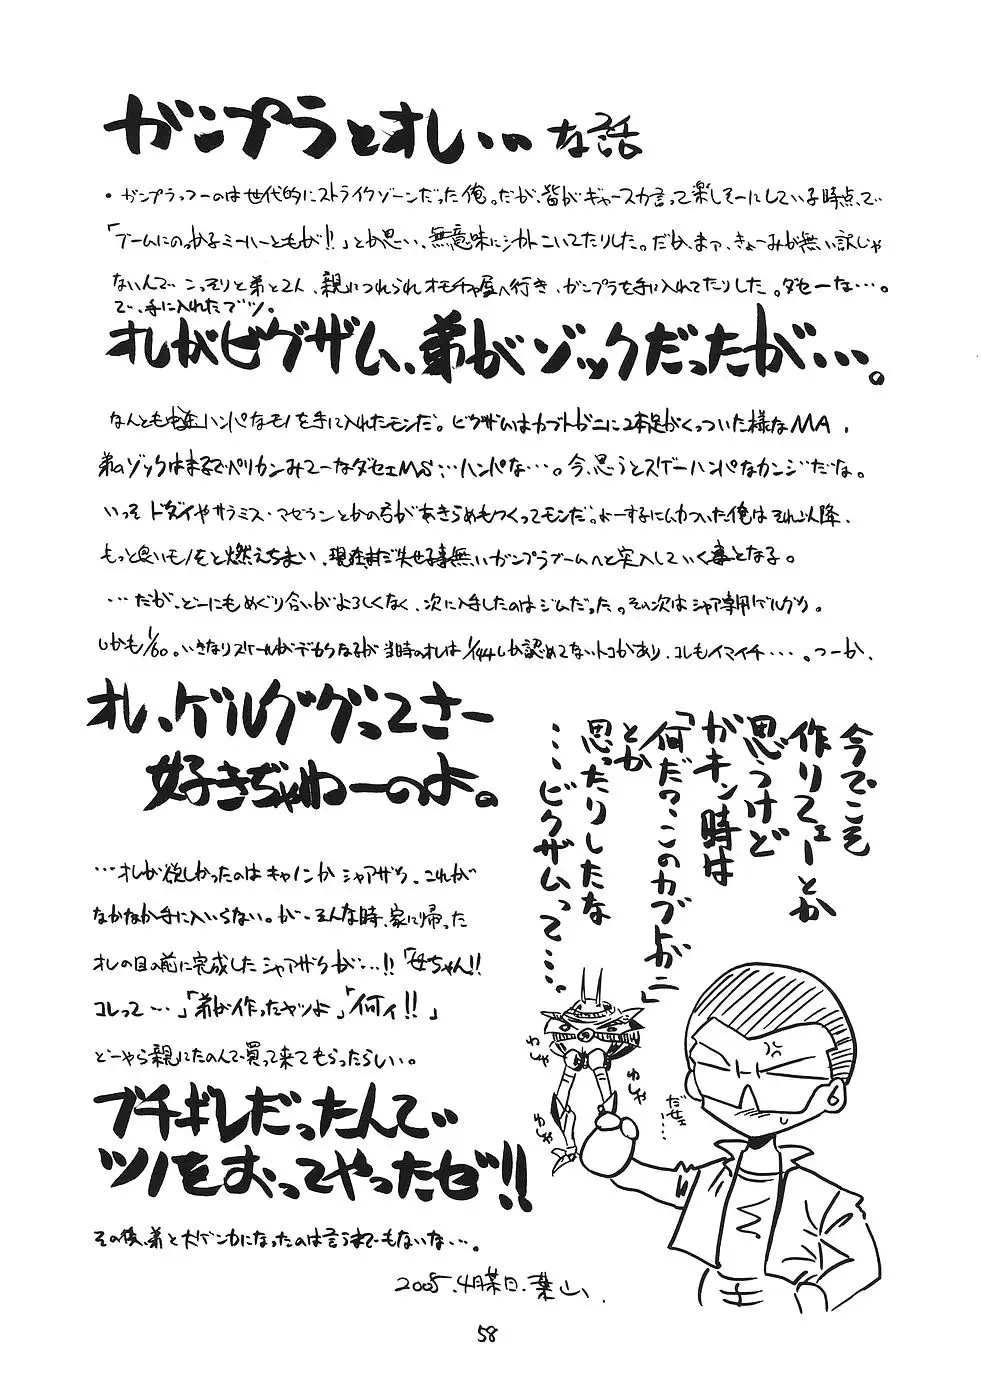 ガンプラとオレ…な話
・ガンプラっつーのは世代的にストライクゾーンだった俺。だが、皆がギャースカ言って楽しそーにしている時点で
「ブームにのっかるミーハーどもが!!」とか思い、無意味にシカトこいてたりした。だが、まァ、きょーみが無い訳じゃ
ないんで こっそりと弟と2人、親につれられオモチャ屋へ行き、ガンプラを手に入れてたりした。ダセーな…。
で、手に入れたブツ。
オレがビグザム、弟がゾックだったが…。
なんとも中途ハンパなモノを手に入れたモンだ。ビグザムはカブトガニに2本足がくっついた様なMA、
弟のゾックはまるでペリカンみてーなダセェMS…ハンパな…。今、思うとスゲーハンパなカンジだな。
いっそ ドダイやサラミス・マゼランとかの方があきらめもつくってモンだ。よーするにムカついた俺はそれ以降、
もっと良いモノをと燃えちまい、現在まだ失せる事無いガンプラブームへと突入していく事となる。
…だが、どーにもめぐり合いがよろしくなく、次に入手したのはジムだった。その次はシャア専用ゲルググ。
しかも1/60。いきなりスケールがデカくなるが当時のオレは1/144しか認めてないトコがあり、コレもイマイチ…。つーか、
オレ、ゲルググってさー
好きぢゃねーのよ。
…オレが欲しかったのはキャノンかシャアザク、これが
なかなか手に入いらない。が、そんな時、家に帰った
オレの目の前に完成したシャアザクが…!!「母ちゃん!!
コレって…」「弟が作ったヤツよ」「何ィ!!」
どーやら親にたのんで買って来てもらったらしい。
ブチギレだったんで
ツノをおってやったゼ!!
その後、弟と大ゲンカになったのは言うまでもないな…。
2005.4月某日.葉山、
今でこそ
作りてェーとか
思うけど
ガキン時は
「何だ?このカブトガニ」
とか
思ったりしたな
…ビグザムって…。
わしゃ
わしゃ
わしゃ
わしゃ
だせェ…
58